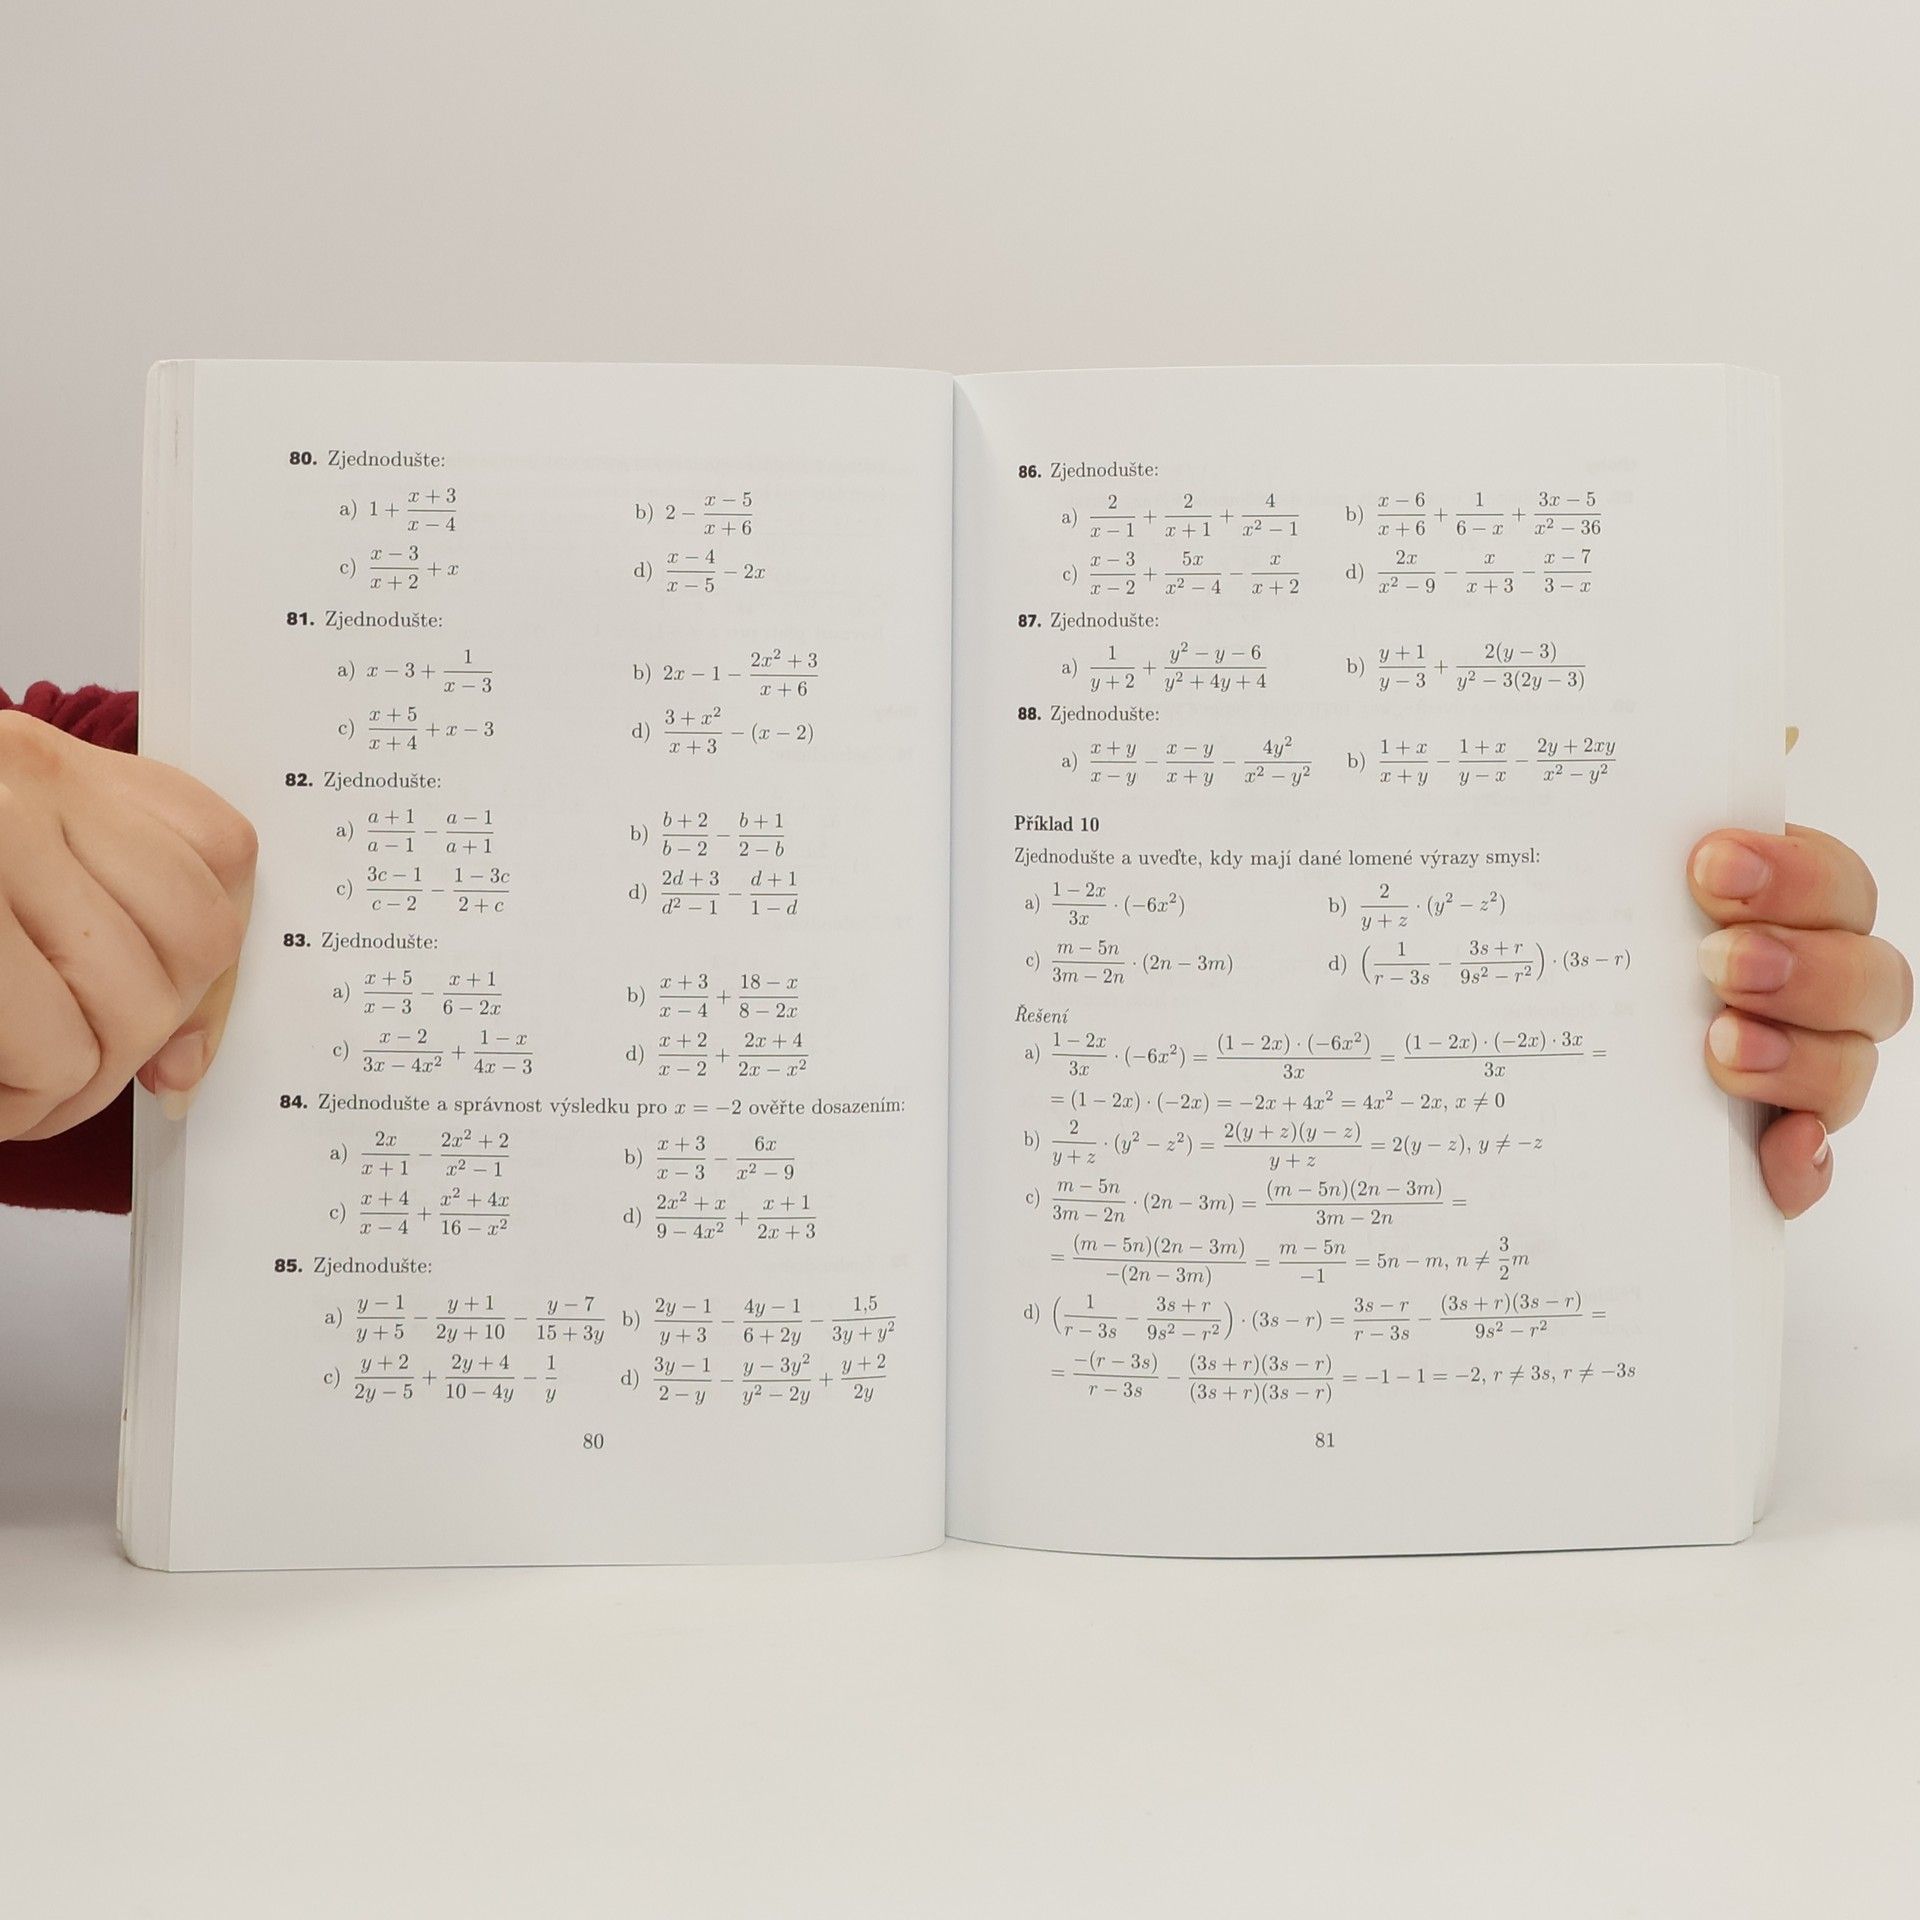 80. Zjednodušte:
a) 1 + (x + 3)/(x − 4) b) 2 − (x − 5)/(x + 6)
c) (x − 3)/(x + 2) + x d) (x − 4)/(x − 5) − 2x
81. Zjednodušte:
a) x − 3 + 1/(x − 3) b) 2x − 1 − (2x² + 3)/(x + 6)
c) (x + 5)/(x + 4) + x − 3 d) (3 + x²)/(x + 3) − (x − 2)
82. Zjednodušte:
a) (a + 1)/(a − 1) − (a − 1)/(a + 1) b) (b + 2)/(b − 2) − (b + 1)/(2 − b)
c) (3c − 1)/(c − 2) − (1 − 3c)/(2 + c) d) (2d + 3)/(d² − 1) − (d + 1)/(1 − d)
83. Zjednodušte:
a) (x + 5)/(x − 3) − (x + 1)/(6 − 2x) b) (x + 3)/(x − 4) + (18 − x)/(8 − 2x)
c) (x − 2)/(3x − 4x²) + (1 − x)/(4x − 3) d) (x + 2)/(x − 2) + (2x + 4)/(2x − x²)
84. Zjednodušte a správnost výsledku pro x = −2 ověřte dosazením:
a) 2x/(x + 1) − (2x² + 2)/(x² − 1) b) (x + 3)/(x − 3) − 6x/(x² − 9)
c) (x + 4)/(x − 4) + (x² + 4x)/(16 − x²) d) (2x² + x)/(9 − 4x²) + (x + 1)/(2x + 3)
85. Zjednodušte:
a) (y − 1)/(y + 5) − (y + 1)/(2y + 10) − (y − 7)/(15 + 3y) b) (2y − 1)/(y + 3) − (4y − 1)/(6 + 2y) − 1,5/(3y + y²)
c) (y + 2)/(2y − 5) + (2y + 4)/(10 − 4y) − 1/y d) (3y − 1)/(2 − y) − (y − 3y²)/(y² − 2y) + (y + 2)/(2y)
80
86. Zjednodušte:
a) 2/(x − 1) + 2/(x + 1) + 4/(x² − 1) b) (x − 6)/(x + 6) + 1/(6 − x) + (3x − 5)/(x² − 36)
c) (x − 3)/(x − 2) + 5x/(x² − 4) − x/(x + 2) d) 2x/(x² − 9) − x/(x + 3) − (x − 7)/(3 − x)
87. Zjednodušte:
a) 1/(y + 2) + (y² − y − 6)/(y² + 4y + 4) b) (y + 1)/(y − 3) + 2(y − 3)/(y² − 3(2y − 3))
88. Zjednodušte:
a) (x + y)/(x − y) − (x − y)/(x + y) − 4y²/(x² − y²) b) (1 + x)/(x + y) − (1 + x)/(y − x) − (2y + 2xy)/(x² − y²)
Příklad 10
Zjednodušte a uveďte, kdy mají dané lomené výrazy smysl:
a) (1 − 2x)/(3x) · (−6x²) b) 2/(y + z) · (y² − z²)
c) (m − 5n)/(3m − 2n) · (2n − 3m) d) (1/(r − 3s) − (3s + r)/(9s² − r²)) · (3s − r)
Řešení
a) (1 − 2x)/(3x) · (−6x²) = ((1 − 2x) · (−6x²))/(3x) = ((1 − 2x) · (−2x) · 3x)/(3x) =
= (1 − 2x) · (−2x) = −2x + 4x² = 4x² − 2x, x ≠ 0
b) 2/(y + z) · (y² − z²) = (2(y + z)(y − z))/(y + z) = 2(y − z), y ≠ −z
c) (m − 5n)/(3m − 2n) · (2n − 3m) = ((m − 5n)(2n − 3m))/(3m − 2n) =
= ((m − 5n)(2n − 3m))/(−(2n − 3m)) = (m − 5n)/(−1) = 5n − m, n ≠ 3/2 m
d) (1/(r − 3s) − (3s + r)/(9s² − r²)) · (3s − r) = (3s − r)/(r − 3s) − ((3s + r)(3s − r))/(9s² − r²) =
= (−(r − 3s))/(r − 3s) − ((3s + r)(3s − r))/((3s + r)(3s − r)) = −1 − 1 = −2, r ≠ 3s, r ≠ −3s
81